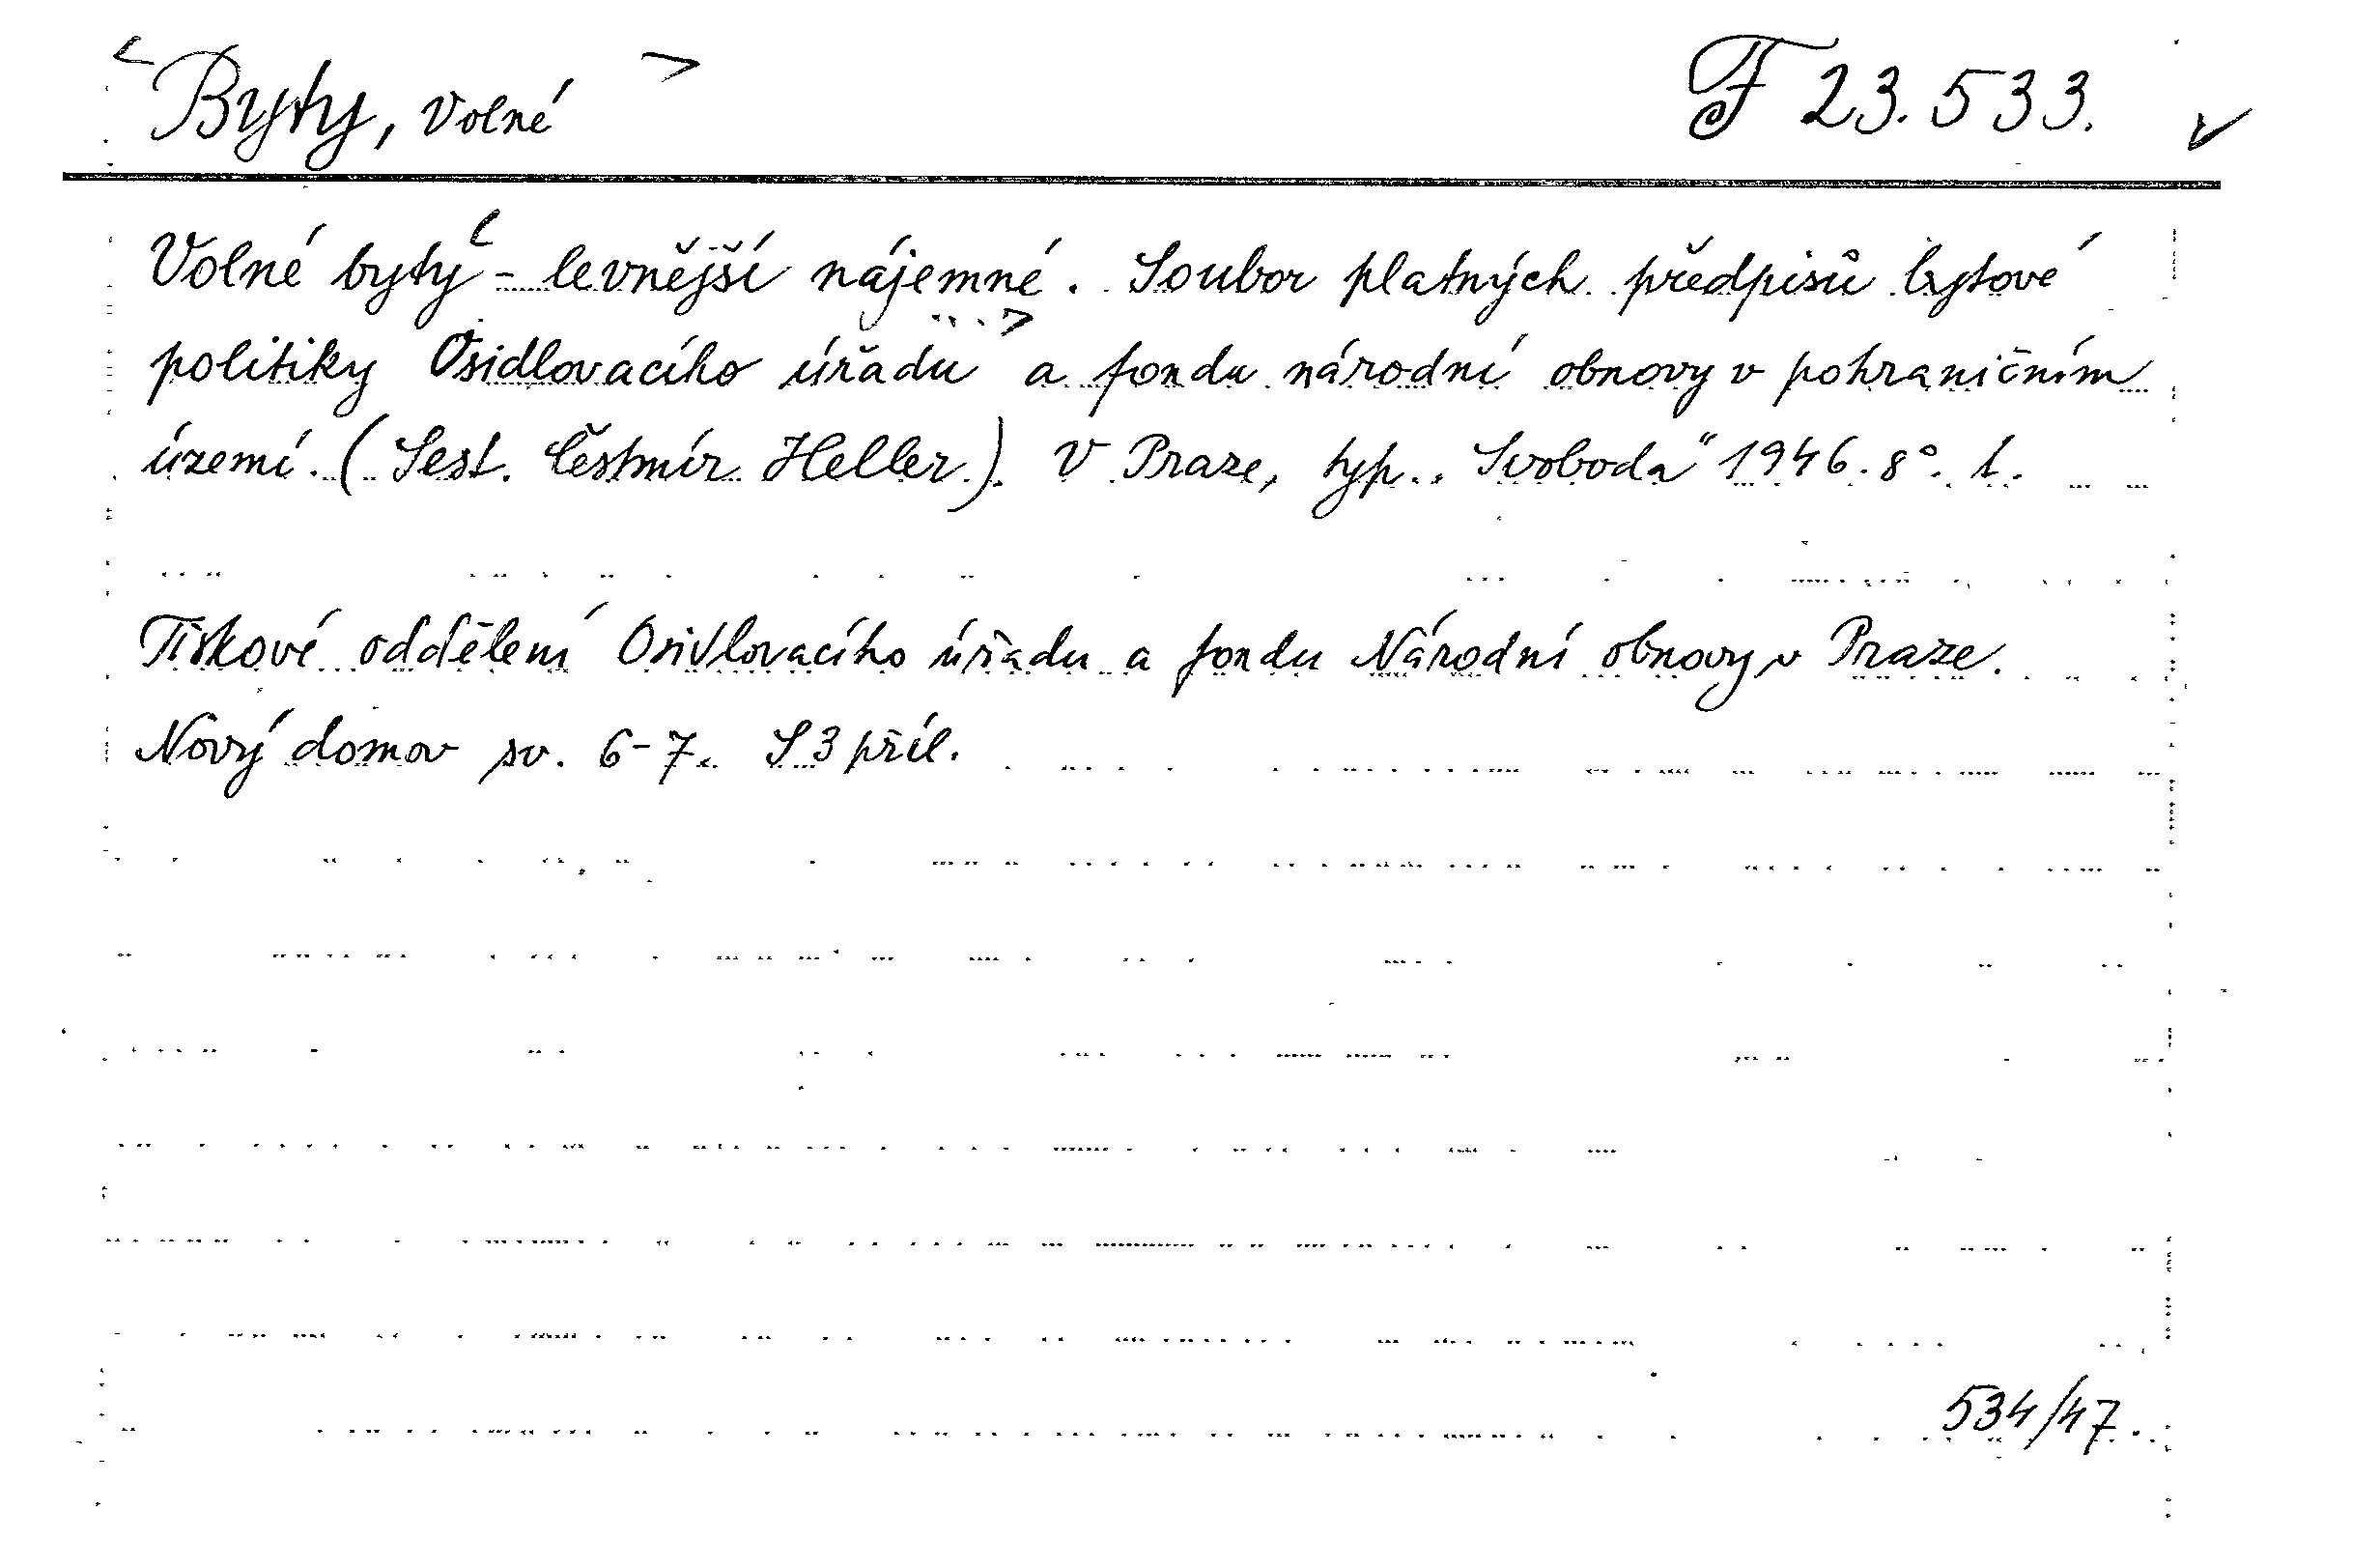 < Byty, volné > F 23.533. ✓
Volné byty < - levnější nájemné. Soubor platných předpisů bytové
politiky Osidlovacího úřadu ...> a fondu národní obnovy v pohraničním
území. (Sest. Čestmír Heller). V Praze, typ. „Svoboda" 1946. 8°.
Tiskové oddělení Osidlovacího úřadu a fondu Národní obnovy v Praze.
Nový domov sv. 6-7. S 3 příl.
534/47.